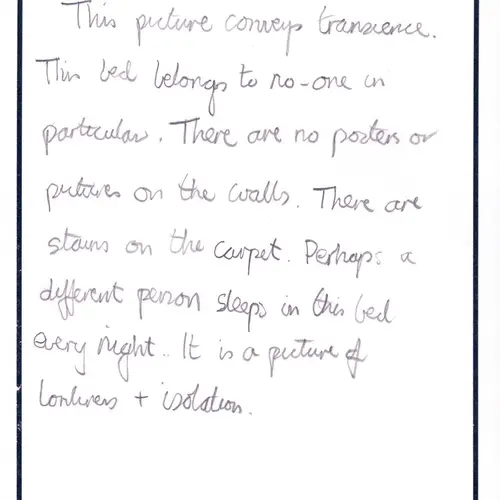 This picture conveys transience.
This bed belongs to no-one in
particular. There are no posters or
pictures on the walls. There are
stains on the carpet. Perhaps a
different person sleeps in this bed
every night. It is a picture of
lonliness + isolation.